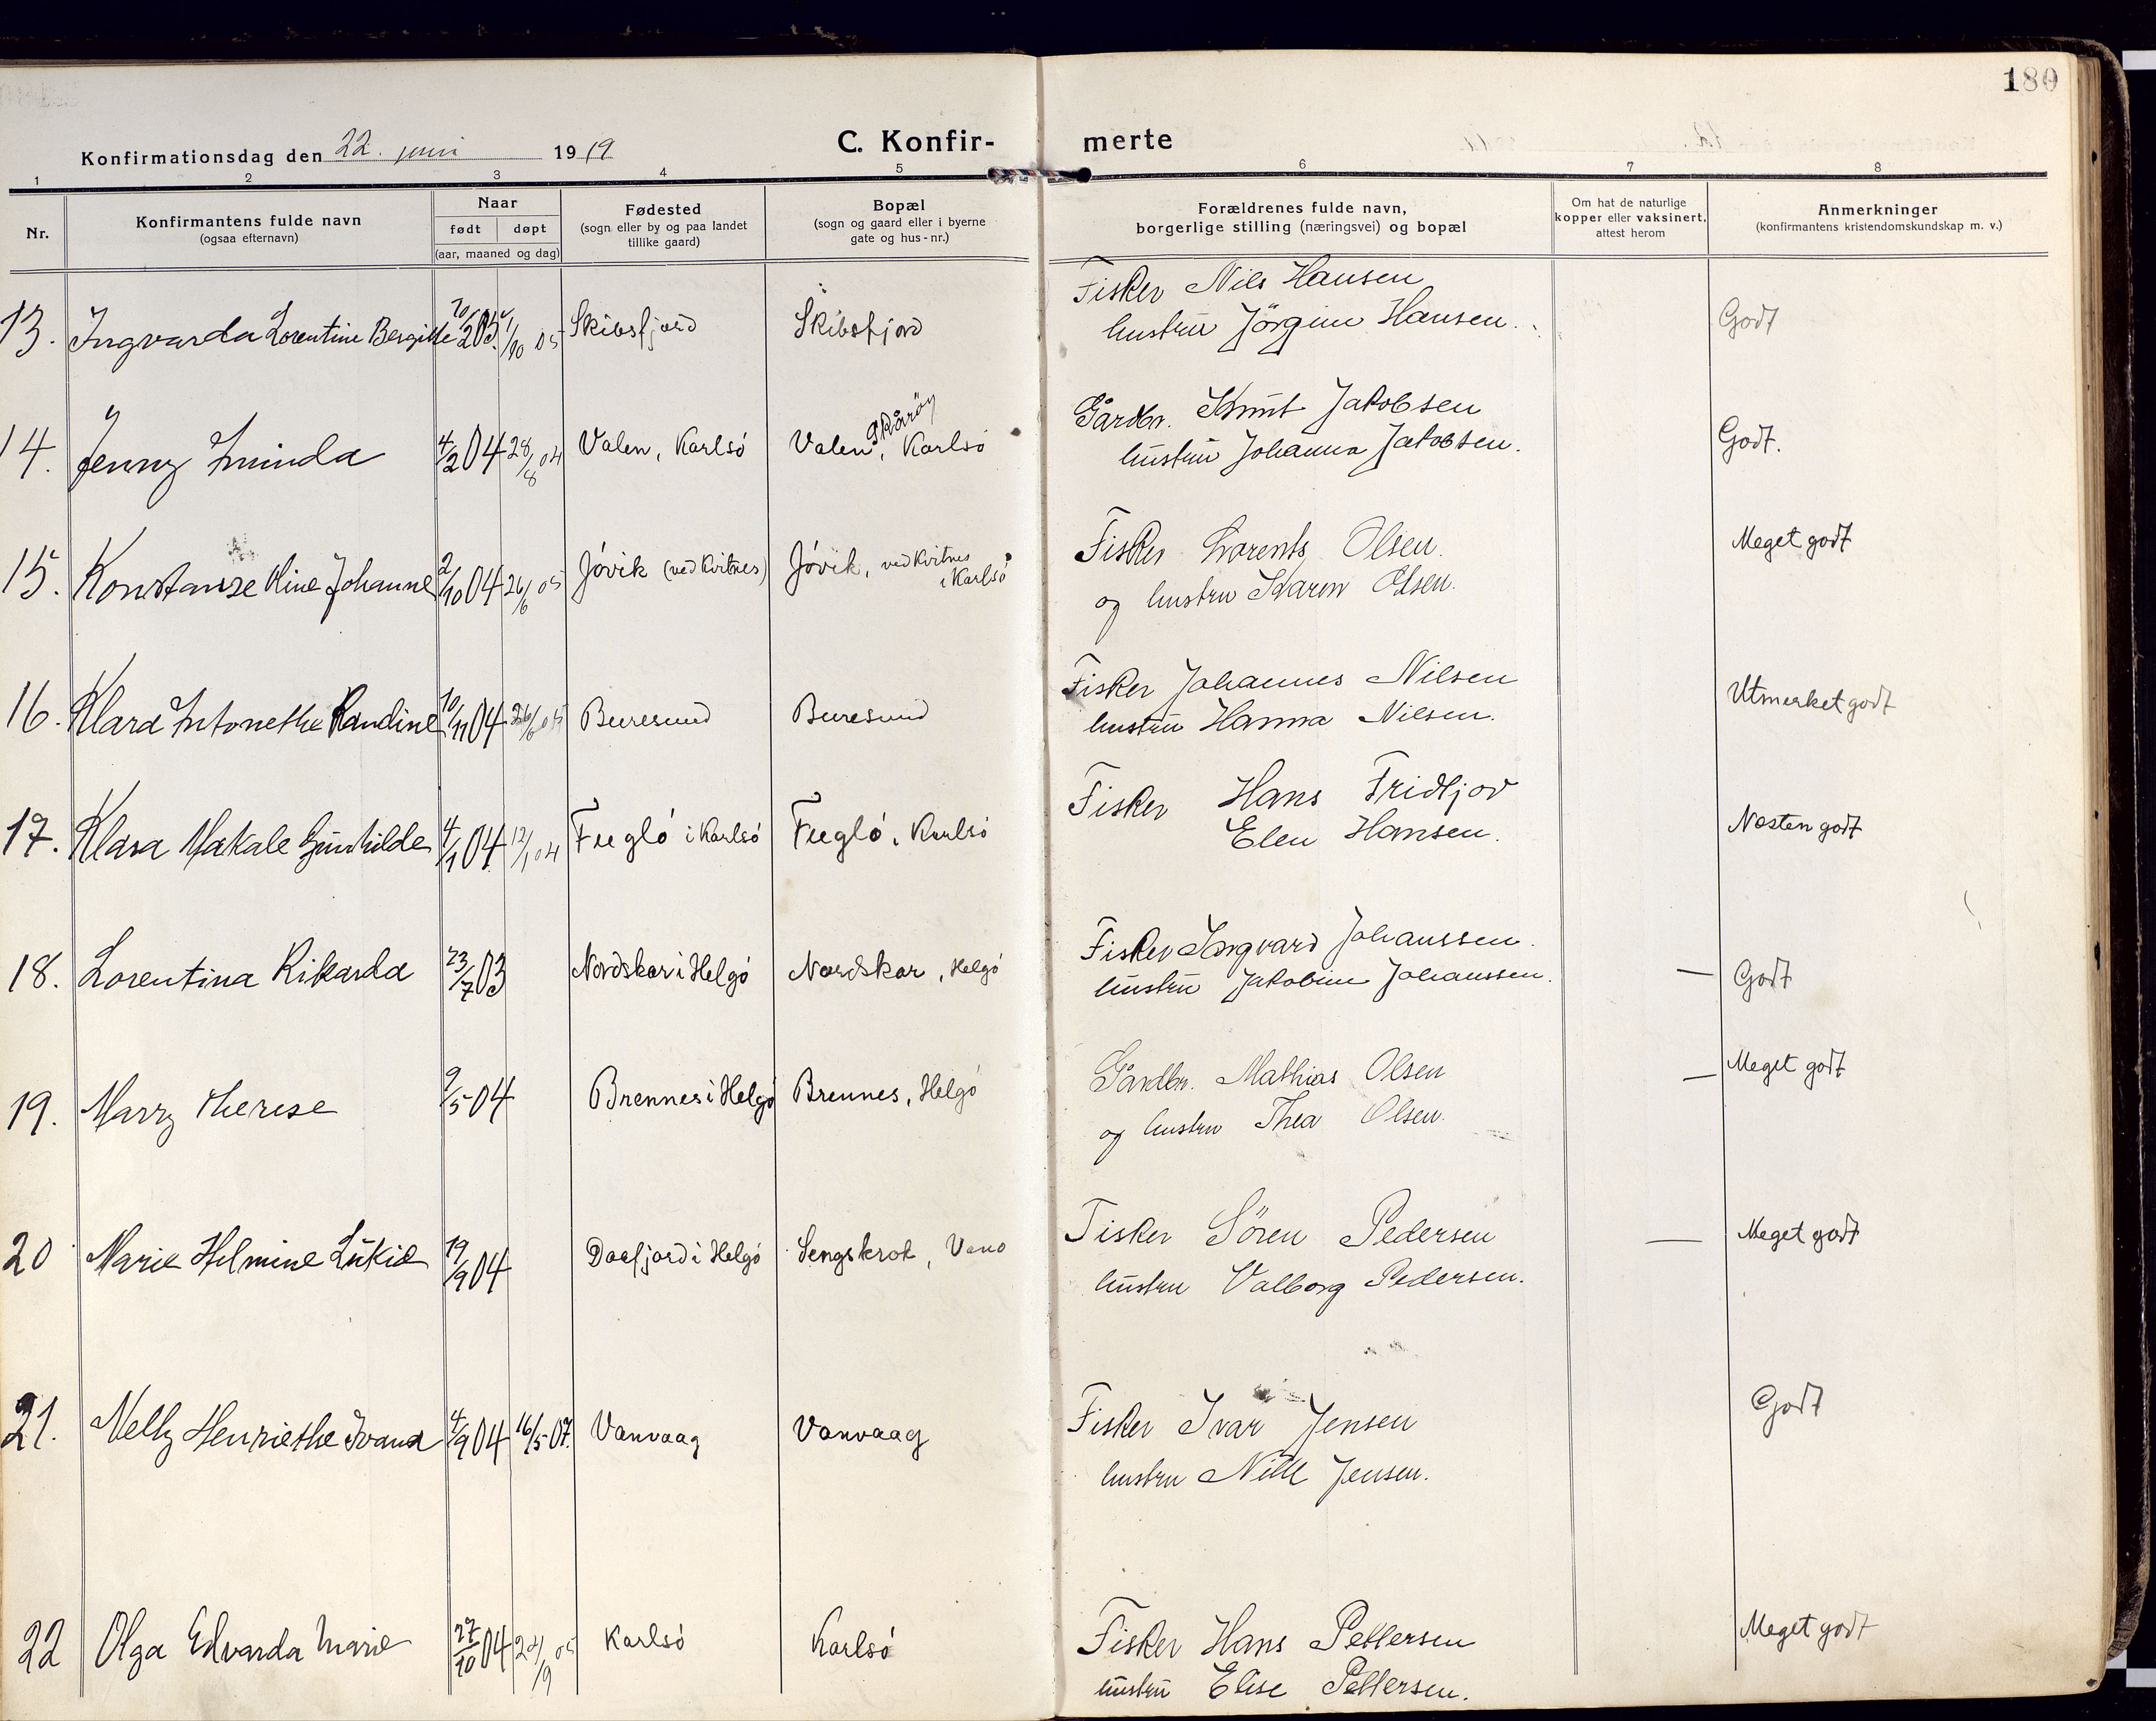 180
Konfirmationsdag den 22. juni 1919
C. Konfir- merte
1 2 3 4 5 6 7 8
Nr.
Konfirmantens fulde navn
(ogsaa efternavn)
Naar
født døpt
(aar, maaned og dag)
Fødested
(sogn eller by og paa landet
tillike gaard)
Bopæl
(sogn og gaard eller i byerne
gate og hus-nr.)
Forældrenes fulde navn,
borgerlige stilling (næringsvei) og bopæl
Om hat de naturlige
kopper eller vaksinert,
attest herom
Anmerkninger
(konfirmantens kristendomskundskap m. v.)
Fisker Nils Hansen
13. Ingvarda Lorentine Bergitte 1/10 05 Skibsfjord Skibsfjord hustru Jörgine Hansen. Godt
Gårdbr. Knut Jakobsen
14. Jenny 4/2 04 28/8 04 Valen, Karlsö Valen, Skårøy, Karlsö hustru Johanna Jakobsen. Godt.
Fisker Lorents Olsen. Meget godt
15. Konstanse Kine Johanne 2/10 04 26/6 05 Jövik (ved Kvitnes) Jövik, ved Kvitnes i Karlsö
og hustru Karen Olsen.
Fisker Johannes Nilsen
16. Klara Antonethe Randine 10/11 04 26/6 05 Buresund Buresund hustru Hanna Nilsen. Utmerket godt
Fisker Hans Fridtjov
17. Klara Makale Gunhilde 4/1 04 12/1 04 Fuglö i Karlsö Fuglö, Karlsö Elen Hansen. Nesten godt
Fisker Ingvard Johanssen.
18. Lorentina Rikarda 23/7 03 Nordskar i Helgö Nordskar, Helgö hustru Jakobine Johanssen. — Godt
Gårdbr. Mathias Olsen — Meget godt
19. Marry Therese 9/5 04 Brennes i Helgö Brennes, Helgö
og hustru Thea Olsen.
Fisker Sören Pedersen — Meget godt
20 Marie Helmine Lukie 19/9 04 Daafjord i Helgö Lengskrok, Vano
hustru Valborg Pedersen.
Fisker Ivar Jensen Godt
21. Nelly Henriethe Ivana 4/9 04 16/5 07. Vanvaag Vanvaag
hustru Jensen.
Fisker Hans Pettersen Meget godt
22 Olga Edvarda Marie 27/10 04 24/9 05 Karlsö Karlsö
hustru Elise Pettersen.